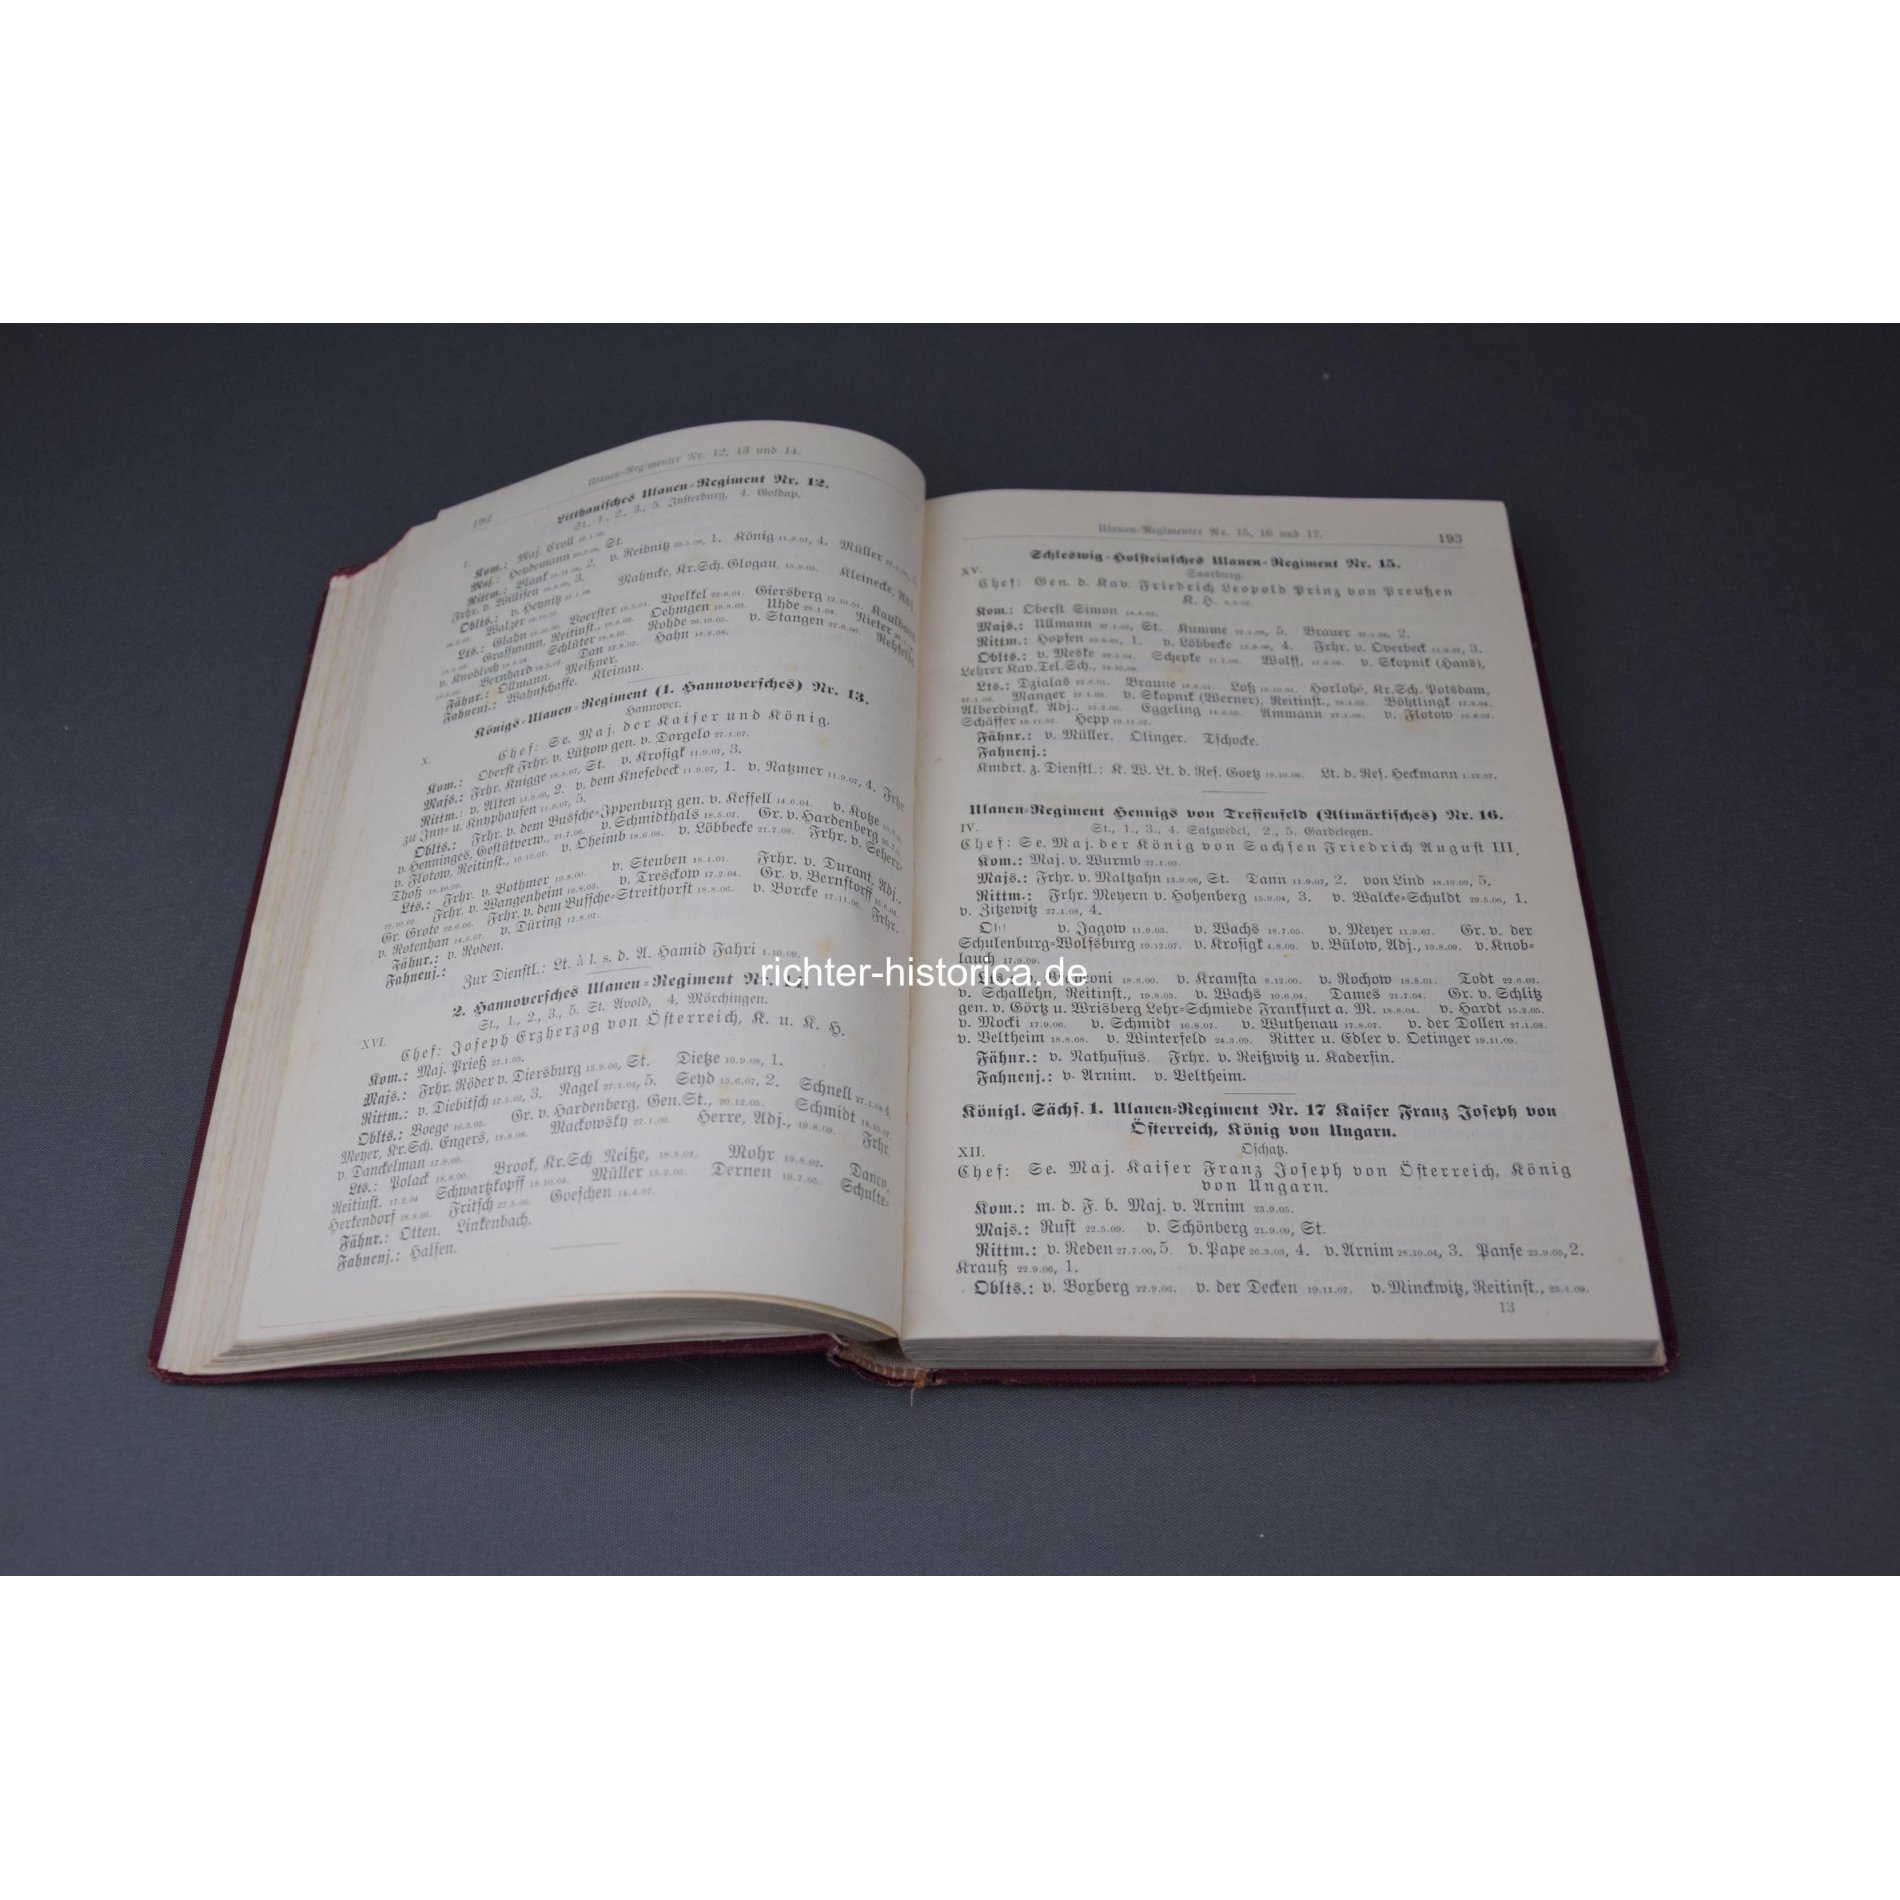 192
Ulanen-Regimenter Nr. 12, 13 und 14.
Litthauisches Ulanen-Regiment Nr. 12.
St., 1., 2., 3., 5. Insterburg, 4. Goldap.
I.
Kom.: Maj. Croll
Maj.: Heydemann St.
Rittm.: Blank 2. v. Reibnitz 1. König 11.9.07, 4. Müller
Frhr. v. Willisen 3.
Oblts.: v. Heynitz Mahncke, Kr.Sch. Glogau, 15.9.05. Kleinecke, Adj.
Walzer
Lts.: Glahn Voerster Voelkel 22.6.01. Giersberg 12.10.01. Kaulbach
Graffmann, Reitinst., Oehmgen 19.8.03. Uhde Rieter
v. Knobloch Schlüter 18.8.05. Rohde 20.10.05. v. Stangen 22.6.06. Rehfeldt
Bernhard Dan 17.8.07. Hahn 18.8.08.
Fähnr.: Ollmann. Meißner.
Fahnenj.: Wahnschaffe. Kleinau.
Königs-Ulanen-Regiment (1. Hannoversches) Nr. 13.
Hannover.
X.
Chef: Se. Maj. der Kaiser und König.
Kom.: Oberst Frhr. v. Lützow gen. v. Dorgelo 27.1.07.
Majs.: Frhr. Knigge 18.5.07, St. v. Krosigk 11.9.07, 3.
Rittm.: v. Alten 13.9.06, 2. v. dem Knesebeck 11.9.07, 1. v. Natzmer 11.9.07, 4. Frhr
zu Inn- u. Knyphausen 11.9.07, 5.
Oblts.: Frhr. v. dem Bussche-Ippenburg gen. v. Kessell 14.6.04. v. Kotze
v. Henninges, Gestütverw., 21.7.06. v. Schmidthals 18.5.07. Gr. v. Hardenberg
v. Flotow, Reitinst., 19.12.07. v. Oheimb 18.6.08. v. Löbbecke 21.7.08. Frhr. v. Seherr-
Thoß 18.10.09.
Lts.: Frhr. v. Bothmer 19.8.00. v. Steuben 18.1.01. Frhr. v. Durant, Adj.,
19.10.02. Frhr. v. Wangenheim 19.8.03. v. Tresckow 17.2.04. Gr. v. Bernstorff 15.6.04.
Gr. Grote 22.6.06. Frhr. v. dem Bussche-Streithorst 18.8.06. v. Borcke 17.11.06. Frhr.
v. Rotenhan 14.9.07. v. Düring 17.8.07.
Fähnr.: v. Roden.
Fahnenj.:
Zur Dienstl.: Lt. à l. s. d. A. Hamid Fahri 1.10.09.
2. Hannoversches Ulanen-Regiment Nr.
St., 1., 2., 3., 5. St. Avold, 4. Mörchingen.
XVI.
Chef: Joseph Erzherzog von Österreich, K. u. K. H.
Kom.: Maj. Prieß 27.1.05.
Majs.: Frhr. Röder v. Diersburg 13.9.06, St. Dietze 10.9.08, 1.
Rittm.: v. Diebitsch 17.5.02, 3. Nagel 27.1.04, 5. Seyd 15.6.07, 2. Schnell 27.1.08 4.
Oblts.: Boege 16.3.05. Gr. v. Hardenberg, Gen.St., 20.12.05. Schmidt 18.10.07.
Meyer, Kr.Sch. Engers, 18.8.08. Mackowsky 27.1.09. Herre, Adj., 19.8.09. Frhr.
v. Danckelman 17.9.09.
Lts.: Polack 18.8.00. Brook, Kr.Sch. Neiße, 18.8.01. Mohr 19.8.02. Danco,
Reitinst. 17.2.04 Schwartzkopff 18.10.04. Müller 15.2.05. Dernen 19.7.05. Schulte-
Herkendorf 18.8.05. Fritsch 22.5.06. Goeschen 14.4.07.
Fähnr.: Otten. Linkenbach.
Fahnenj.: Halfen.
Ulanen-Regimenter Nr. 15, 16 und 17.
193
Schleswig-Holsteinsches Ulanen-Regiment Nr. 15.
XV.
Saarburg.
Chef: Gen. d. Kav. Friedrich Leopold Prinz von Preußen
K. H.
Kom.: Oberst Simon
Majs.: Ullmann St. Kumme 5. Brauer 2.
Rittm.: Hopfen 1. v. Löbbecke 4. Frhr. v. Overbeck 3.
Oblts.: v. Meske Schepke Wolff, v. Skopnik (Hans),
Lehrer Kav.Tel.Sch.,
Lts.: Dzialas 22.6.01. Braune Loß 19.10.01. Horlohé, Kr.Sch. Potsdam,
Manger v. Skopnik (Werner), Reitinst., Böhtlingk 17.2.04.
Alberdingk, Adj., 15.2.05. Eggeling Ammann 27.1.06. v. Flotow 16.8.07.
Schäffer 19.11.07. Hepp 19.11.07.
Fähnr.: v. Müller. Olinger. Tschocke.
Fahnenj.:
Kmdrt. z. Dienstl.: K. W. Lt. d. Res. Goetz 19.10.06. Lt. d. Res. Heckmann 1.12.07.
Ulanen-Regiment Hennigs von Treffenfeld (Altmärkisches) Nr. 16.
IV.
St., 1., 3., 4. Salzwedel, 2., 5. Gardelegen.
Chef: Se. Maj. der König von Sachsen Friedrich August III.
Kom.: Maj. v. Wurmb 27.1.03.
Majs.: Frhr. v. Maltzahn 13.9.06, St. Dann 11.9.07, 2. von Lind 18.10.09, 5.
Rittm.: Frhr. Meyern v. Hohenberg 15.9.04, 3. v. Walcke-Schuldt 29.5.06, 1.
v. Zitzewitz 27.1.08, 4.
v. Jagow 11.9.03. v. Wachs 18.7.05. v. Meyer 11.9.07. Gr. v. der
Schulenburg-Wolfsburg 19.12.07. v. Krosigk 4.8.09. v. Bülow, Adj., 19.8.09. v. Knob-
lauch 17.9.09.
18.8.00. v. Kramsta 8.12.00. v. Rochow 18.8.01. Todt 22.6.02.
v. Schallehn, Reitinst., 19.8.03. v. Wachs 10.6.04. Dames 21.7.04. Gr. v. Schlitz
gen. v. Görtz u. Wrisberg Lehr-Schmiede Frankfurt a. M. 18.8.04. v. Hardt 15.2.05.
v. Mocki 17.9.06. v. Schmidt 16.8.07. v. Wuthenau 17.8.07. v. der Dollen 27.1.08.
v. Veltheim 18.8.08. v. Winterfeld 24.3.09. Ritter u. Edler v. Oetinger 19.11.09.
Fähnr.: v. Nathusius. Frhr. v. Reißwitz u. Kadersin.
Fahnenj.: v. Arnim. v. Veltheim.
Königl. Sächs. 1. Ulanen-Regiment Nr. 17 Kaiser Franz Joseph von
Österreich, König von Ungarn.
XII.
Oschatz.
Chef: Se. Maj. Kaiser Franz Joseph von Österreich, König
von Ungarn.
Kom.: m. d. F. b. Maj. v. Arnim 23.9.05.
Majs.: Rust 22.5.09. v. Schönberg 21.9.09, St.
Rittm.: v. Reden 27.7.00, 5. v. Pape 26.3.03, 4. v. Arnim 28.10.04, 3. Panse 23.9.05, 2.
Krauß 22.9.06, 1.
Oblts.: v. Boxberg 22.9.06. v. der Decken 19.11.07. v. Minckwitz, Reitinst., 23.4.09.
13
richter-historica.de